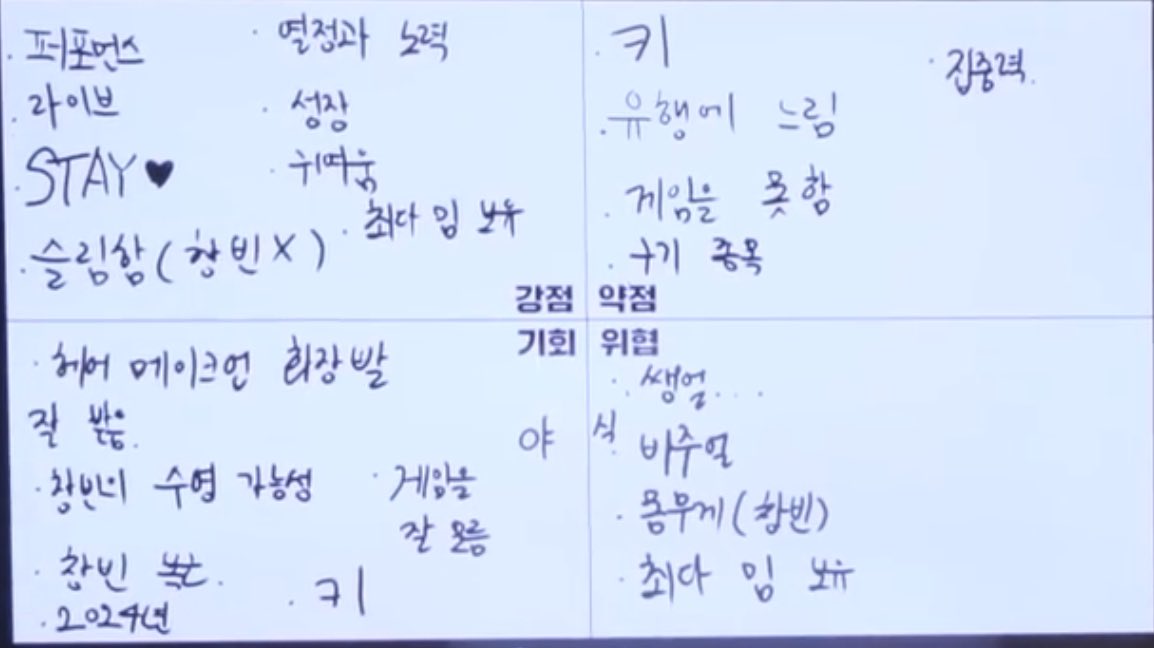 · 퍼포먼스
· 라이브
· STAY♥
· 슬림함(창빈X)
· 열정과 노력
· 성장
· 귀여움
· 최다 입 보유
강점
· 키
· 유행에 느림
· 게임을 못함
· 구기 종목
· 집중력
약점
기회
· 헤어 메이크업 화장발
잘 받음.
· 창빈의 수염 가능성
· 창빈
· 2024년
· 게임을
잘 모름
· 키
야식
위협
· 쌩얼...
비주얼
· 몸무게(창빈)
· 최다 입 보유